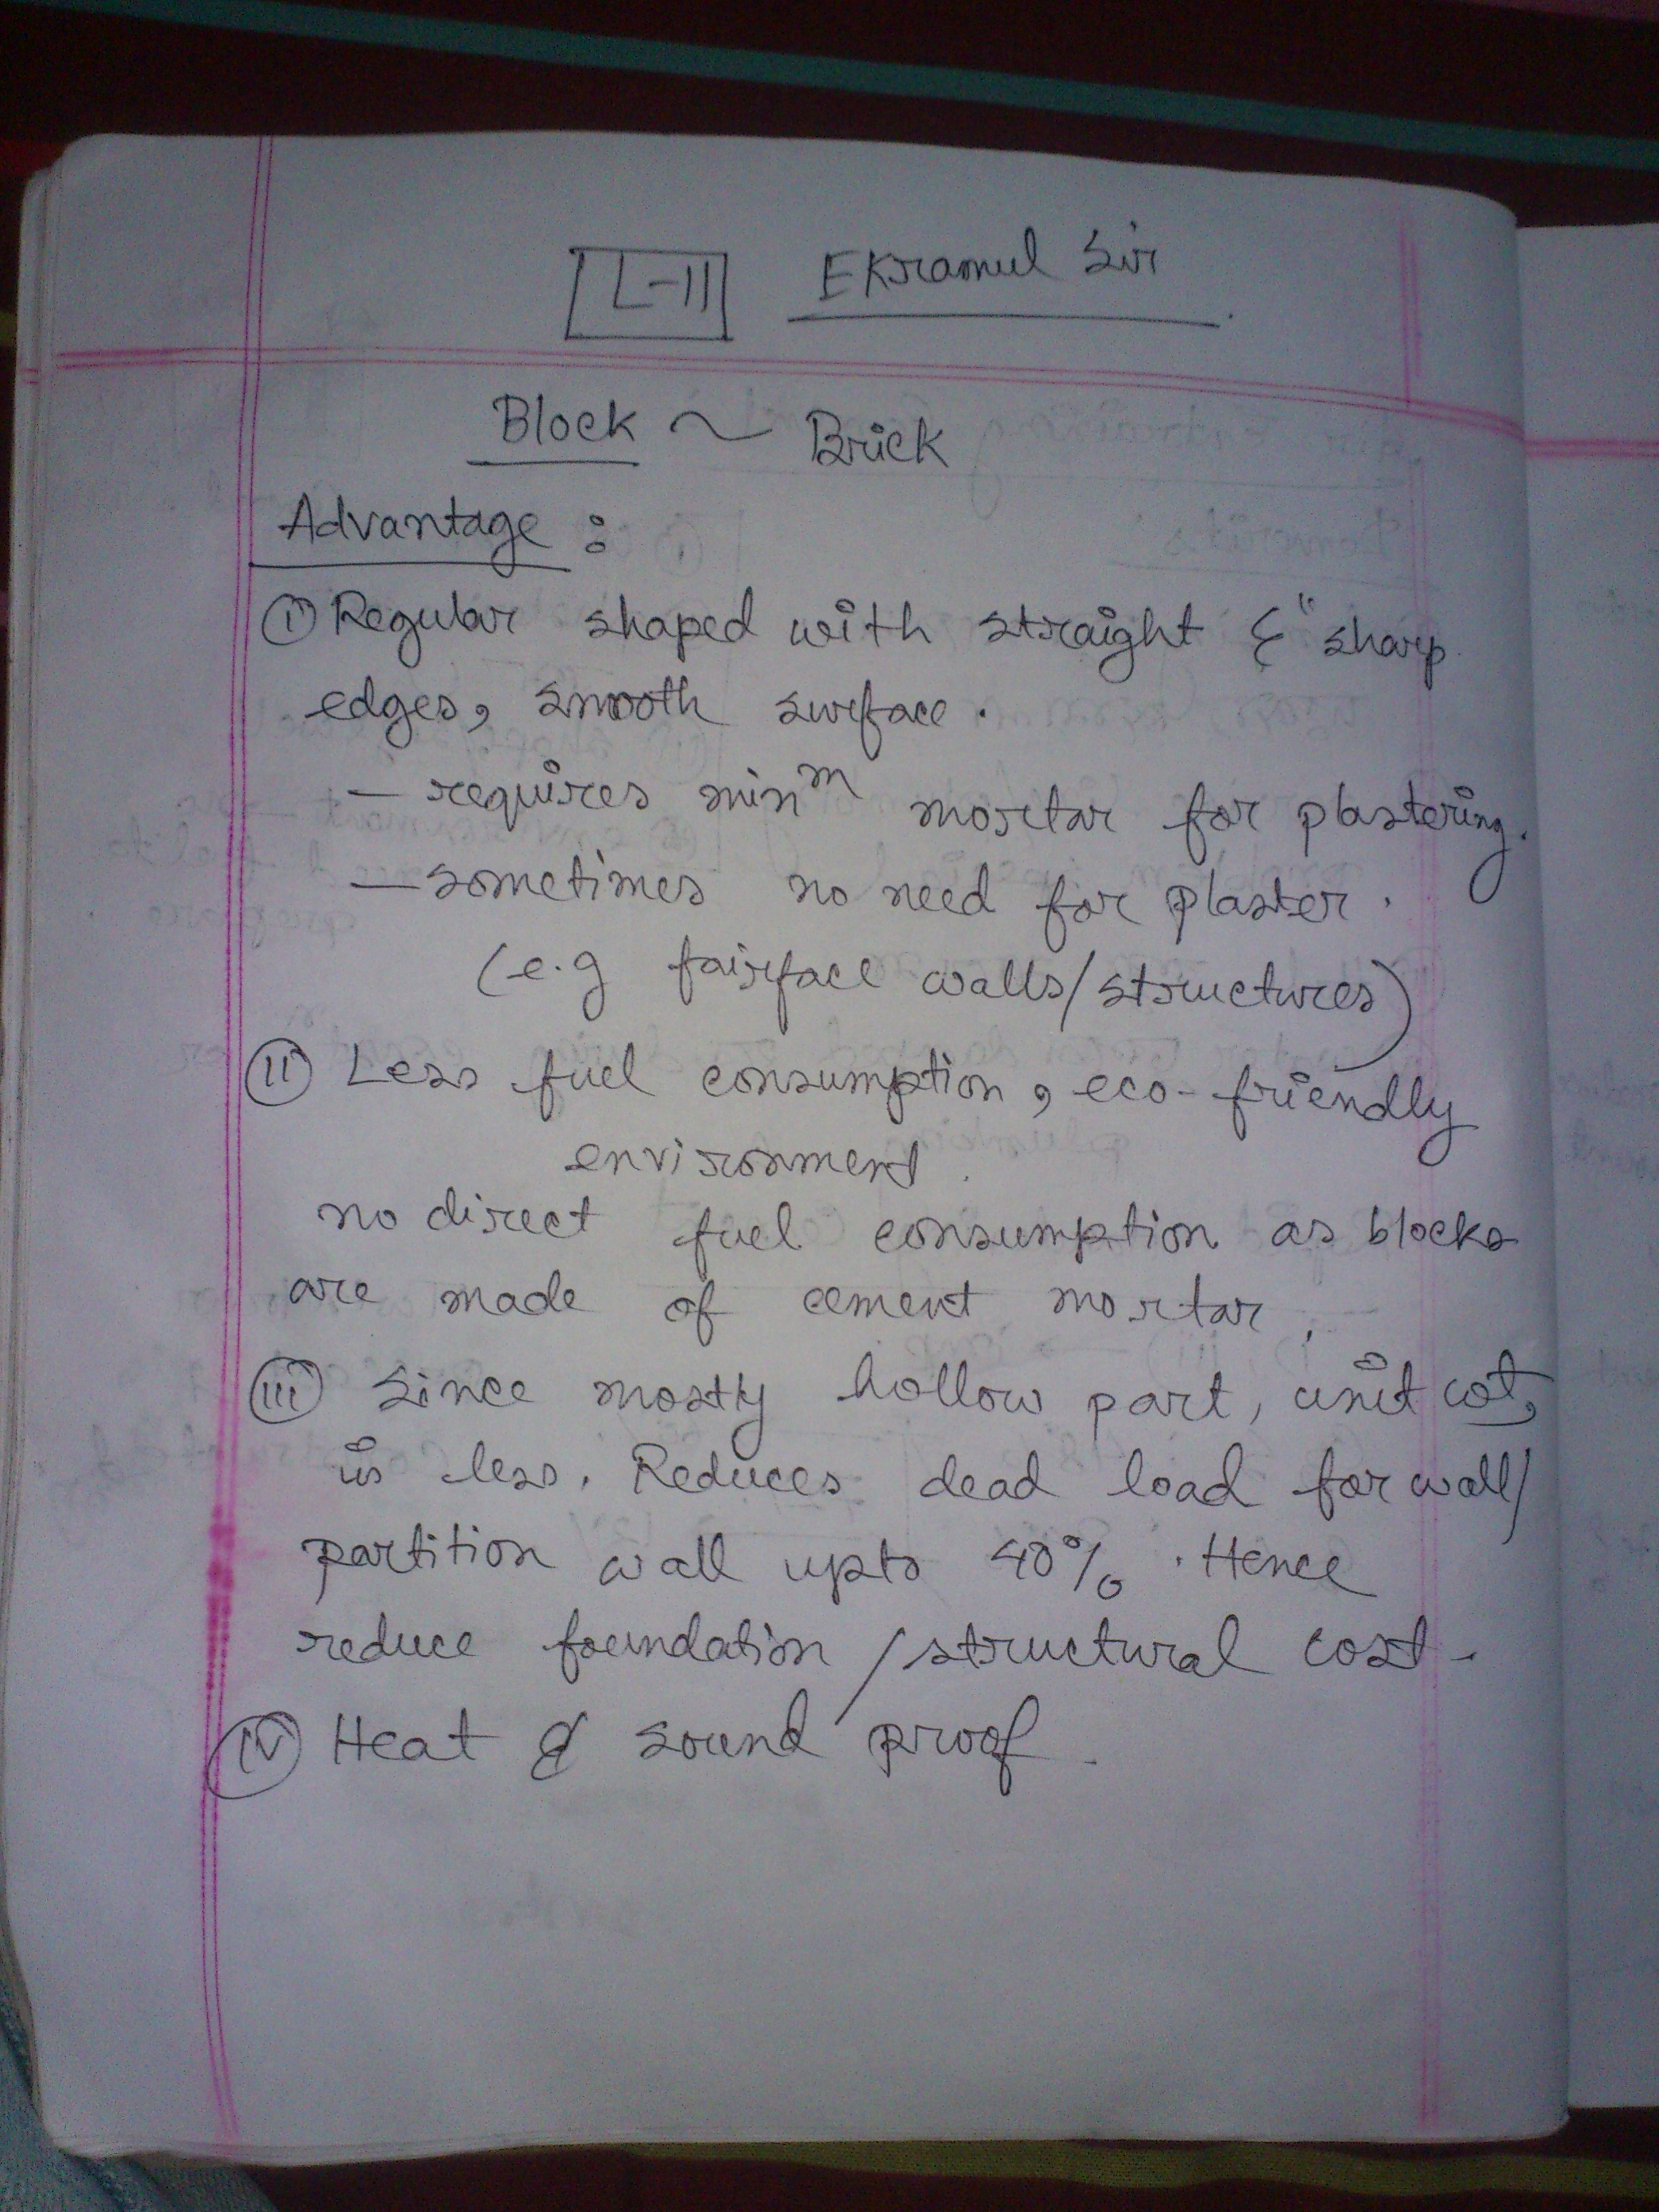 L-11 Ekramul Sir
Block ~ Brick
Advantage :
(i) Regular shaped with straight & "sharp
edges, smooth surface.
— requires minᵐ mortar for plastering.
— sometimes no need for plaster.
(e.g fairface walls/structures)
(ii) Less fuel consumption, eco-friendly
environment.
no direct fuel consumption as blocks
are made of cement mortar.
(iii) Since mostly hollow part, unit cot,
is less. Reduces dead load for wall/
partition wall upto 40%. Hence
reduce foundation/structural cost.
(iv) Heat & sound proof.